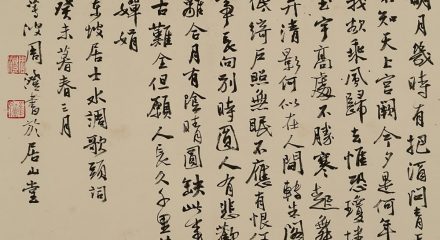 明月幾時有把酒問青
不知天上宮闕今夕是何年
我欲乘風歸去惟恐瓊樓
玉宇高處不勝寒起舞
弄清影何似在人間轉朱閣
低綺戶照無眠不應有恨何
事長向別時圓人有悲歡
離合月有陰晴圓缺此事
古難全但願人長久千里
嬋娟
東坡居士水調歌頭詞
癸未暮春三月
波周澄書於居山堂